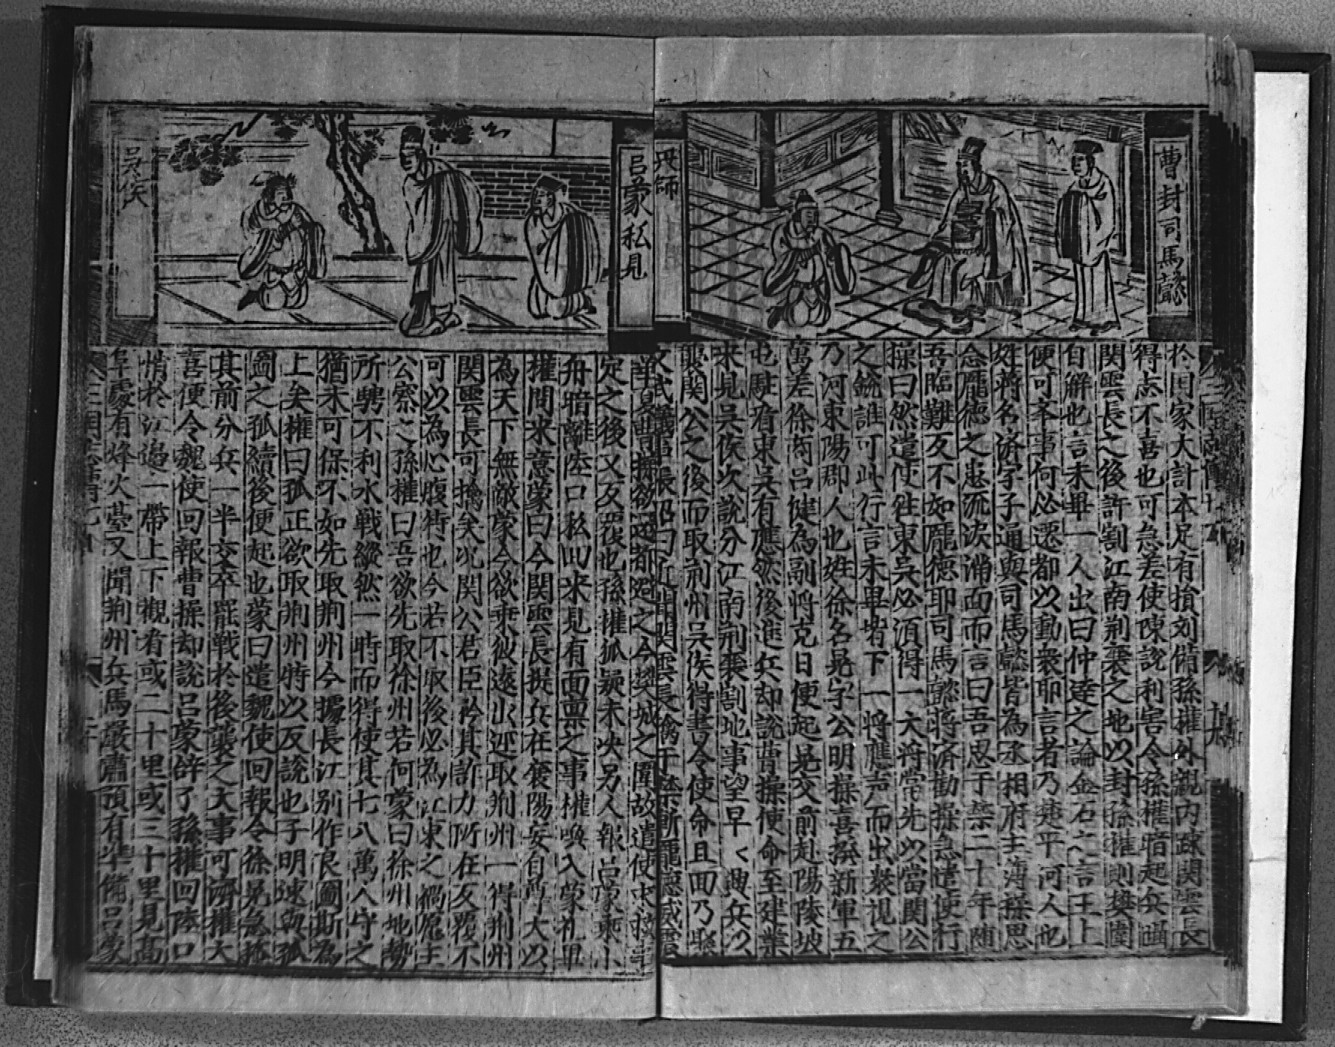 曹封司馬懿
丑師
於囯家大計本足有損刘俻孫權外親内疎関雲長
得志不喜也可急差使陳說利害令孫權暗起兵躡
関雲長之後許割江南荆襄之地以封孫權則樊圍
自解也言未畢一人出曰仲達之論金石之言王上
便可奉事何必遷都以動衆耶言者乃楚平河人也
姓蒋名济字子通與司馬懿皆為丞相府主薄操思
念龐德之忠流淚满面而言曰吾思于禁二十年随
吾臨難反不如龐德耶司馬懿蒋济勸操急遣使行
操曰然遣使徃東吴必湏得一大將當先以當関公
之銳誰可此行言未畢堦下一將應声而出衆視之
乃河東陽郡人也姓徐名晃字公明操喜撥新軍五
萬差徐商吕健為副將克日便起晃交前赴陽陵坡
屯駐看東吴有應然後進兵却說曹操使命至建業
來見吴侯次說分江南荆襄割地事望早〻興兵以
襲関公之後而取荆州吴侯得書令使命且囬乃聚
文武議事張昭曰近聞関雲長擒于禁斬龐德威震
吕蒙私見
吴侯
華夏曹操欲迁都避之今樊城之圍故遣使求救事
定之後又反覆也孫權狐疑未决另人報吕蒙乘小
舟暗離陸口私囬来見有面禀之事權喚入蒙礼畢
權問来意蒙曰今関雲長提兵在襄陽妄自尊大以
為天下無敵蒙今欲乘彼遠出迳取荆州一得荆州
関雲長可擒矣况関公君臣矜其詐力所在反覆不
可以為心腹待也今若不取後必為江東之禍愿主
公察之孫權曰吾欲先取徐州若何蒙曰徐州地勢
所騁不利水戦縱然一時而得使其七八萬人守之
猶未可保不如先取荆州今據長江别作良圖斯為
上矣權曰孤正欲取荆州特以反說也子明速與孤
圖之孤續後便起也蒙曰遣魏使回報令徐晃急掩
其前分兵一半交卒罷戦於後襲之大事可濟權大
喜便令魏使回報曹操却說吕蒙辞了孫權回陸口
悄於江邉一帶上下觀看或二十里或三十里見高
阜處有烽火臺又聞荆州兵馬嚴肅預有凖備吕蒙